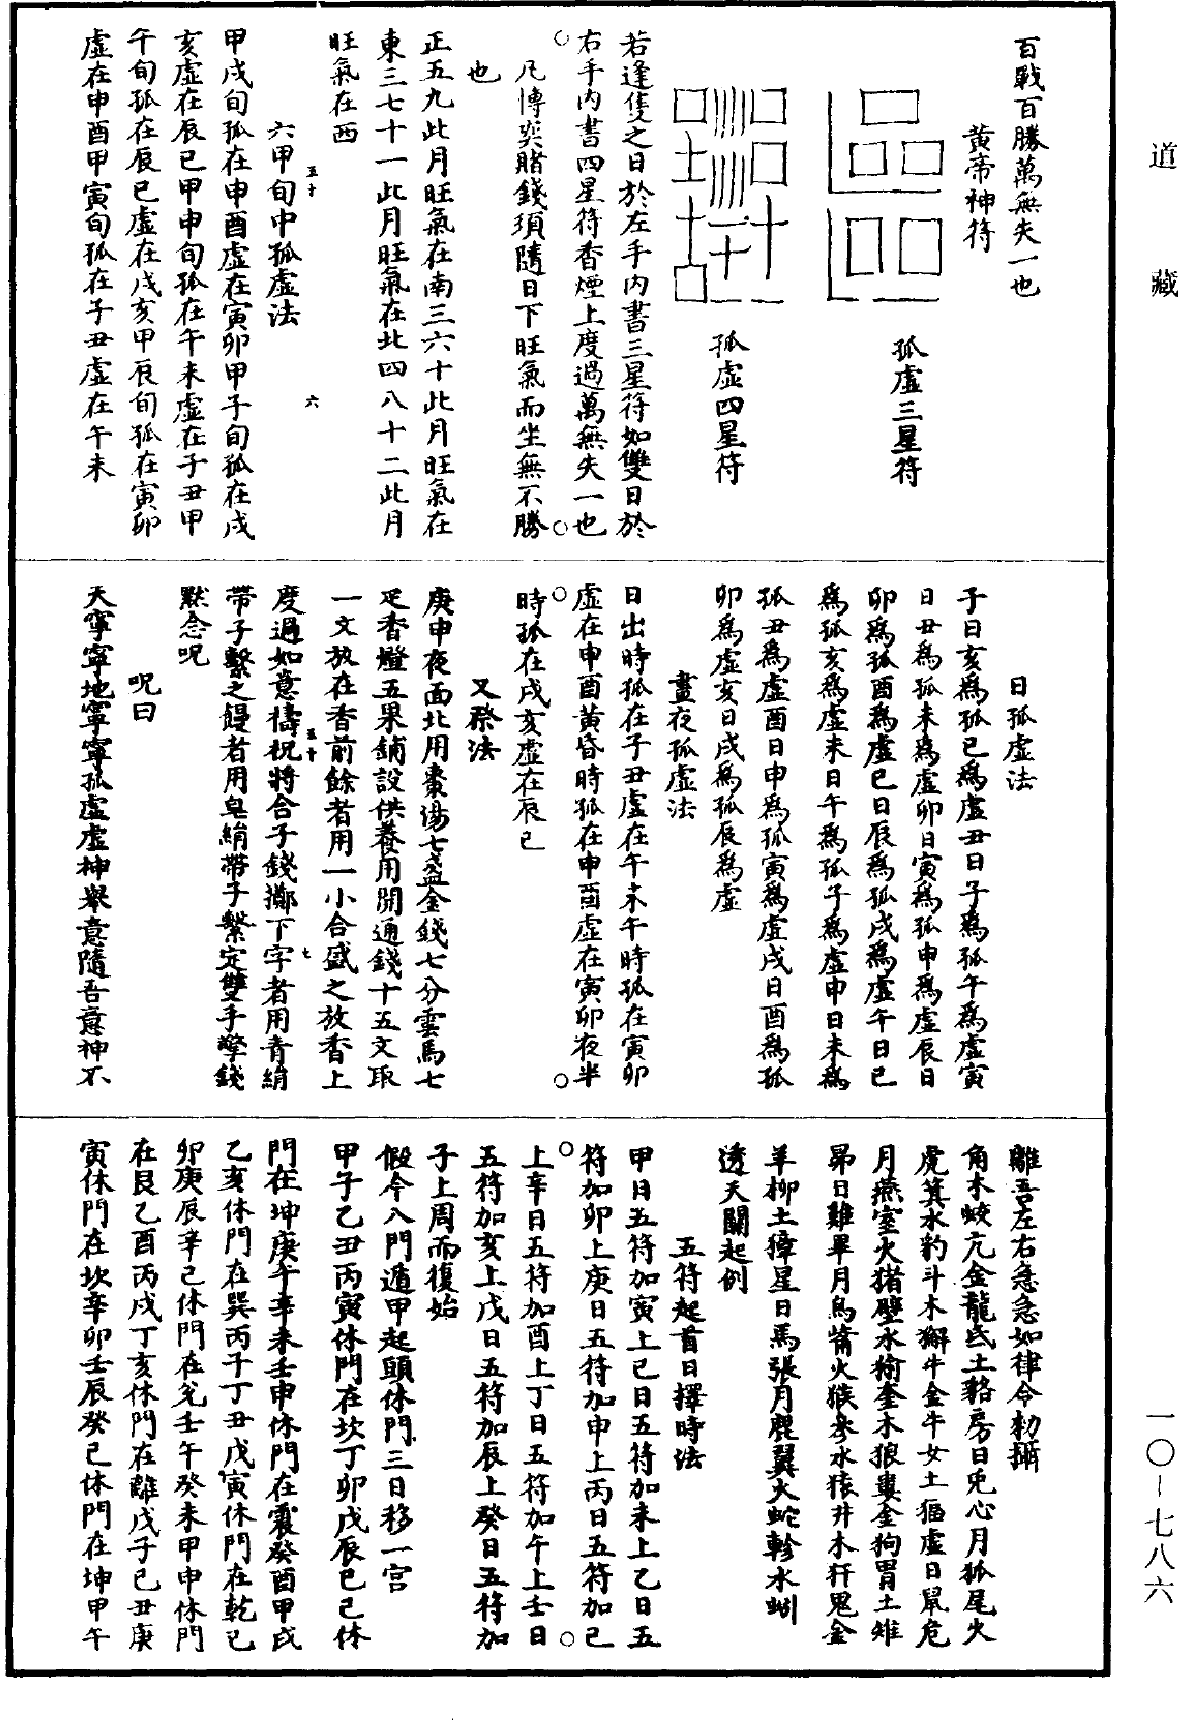 道藏
百戰百勝萬無失一也
黃帝神符
孤虛三星符
孤虛四星符
若逢隻之日於左手內書三星符如雙日於
右手內書四星符香煙上度過萬無失一也
凡博奕賭錢須隨日下旺氣而坐無不勝
也
正五九此月旺氣在南三六十此月旺氣在
東三七十一此月旺氣在北四八十二此月
旺氣在西
六甲旬中孤虛法
五十
六
甲戌旬孤在申酉虛在寅卯甲子旬孤在戌
亥虛在辰巳甲申旬孤在午未虛在子丑甲
午旬孤在辰巳虛在戌亥甲辰旬孤在寅卯
虛在申酉甲寅旬孤在子丑虛在午未
日孤虛法
子日亥為孤巳為虛丑日子為孤午為虛寅
日丑為孤未為虛卯日寅為孤申為虛辰日
卯為孤酉為虛巳日辰為孤戌為虛午日巳
為孤亥為虛未日午為孤子為虛申日未為
孤丑為虛酉日申為孤寅為虛戌日酉為孤
卯為虛亥日戌為孤辰為虛
晝夜孤虛法
日出時孤在子丑虛在午未午時孤在寅卯
虛在申酉黃昏時孤在申酉虛在寅卯夜半
時孤在戌亥虛在辰巳
又祭法
庚申夜面北用棗湯七盞金錢七分雲馬七
疋香燈五果鋪設供養用開通錢十五文取
一文放在香前餘者用一小合盛之放香上
度過如意禱祝將合子錢擲下字者用青絹
五十
七
帶子繫之鏝者用皂絹帶子繫定雙手擎錢
默念呪
呪曰
天寧寧地寧寧孤虛虛神舉意隨吾意神不
離吾左右急急如律令勅攝
角木蛟亢金龍氐土貉房日兎心月狐尾火
虎箕水豹斗木獬牛金牛女土猵虛日鼠危
月燕室火猪壁水㺄奎木狼婁金狗胃土雉
昴日雞畢月烏觜火猴參水猿井木犴鬼金
羊柳土獐星日馬張月鹿翼火蛇軫水蚓
透天關起例
五符起首日擇時法
甲日五符加寅上己日五符加未上乙日五
符加卯上庚日五符加申上丙日五符加巳
上辛日五符加酉上丁日五符加午上壬日
五符加亥上戊日五符加辰上癸日五符加
子上周而復始
假令八門遁甲起頭休門三日移一宮
甲子乙丑丙寅休門在坎丁卯戊辰己巳休
門在坤庚午辛未壬申休門在震癸酉甲戌
乙亥休門在巽丙子丁丑戊寅休門在乾己
卯庚辰辛巳休門在兌壬午癸未甲申休門
在艮乙酉丙戌丁亥休門在離戊子己丑庚
寅休門在坎辛卯壬辰癸巳休門在坤甲午
一〇-七八六